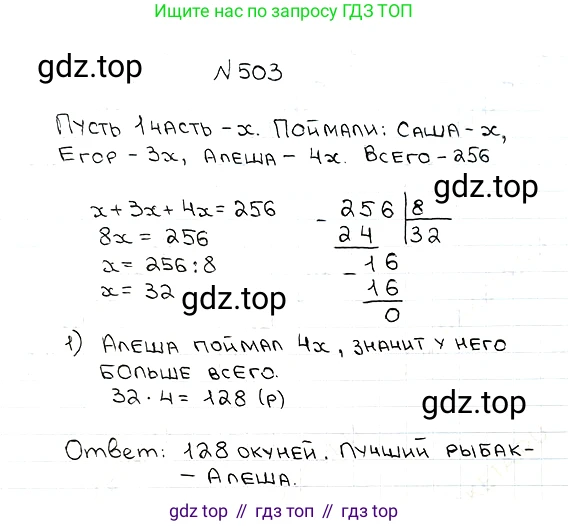 Ищите нас по запросу ГДЗ ТОП
gdz.top
N 503
Пусть 1 часть - x. Поймали: Саша - x,
Егор - 3x, Алеша - 4x. Всего - 256
gdz.top
x + 3x + 4x = 256
8x = 256
x = 256 : 8
x = 32
- 256 | 8
24 | 32
- 16
16
0
gdz.top
1) Алеша поймал 4x, значит у него
больше всего.
32 · 4 = 128 (р)
gdz.top
Ответ: 128 окуней. Лучший рыбак -
- Алеша.
gdz.top // gdz.top // gdz.top